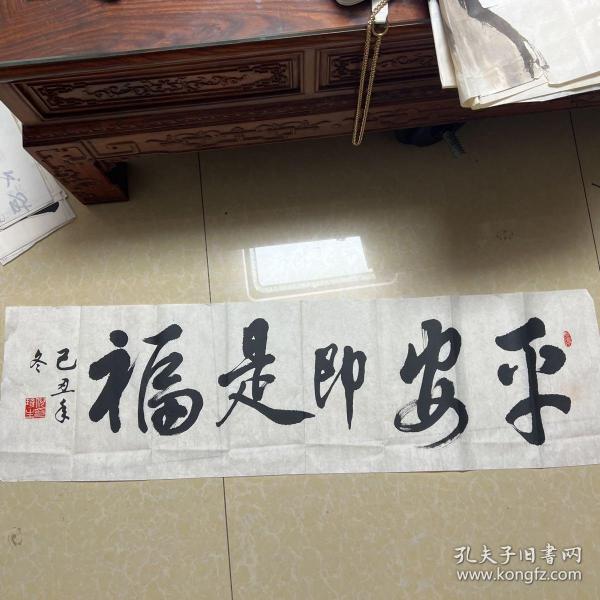 平安即是福
己丑年
冬
孔夫子旧书网
www.kongfz.com